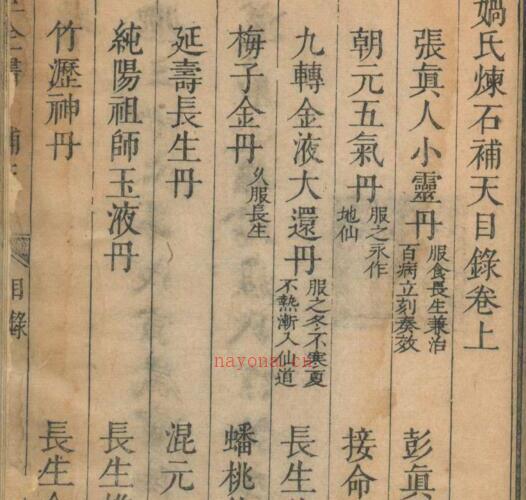 媧氏煉石補天目錄卷上
張眞人小靈丹 服食長生兼治
百病立刻奏效
彭眞
朝元五氣丹 服之永作
地仙
接命
九轉金液大還丹 服之冬不寒夏
不熱漸入仙道
長生
梅子金丹 久服長生
蟠桃
延壽長生丹
混元
純陽祖師玉液丹
長生
竹瀝神丹
長生
目錄
nayona.cn